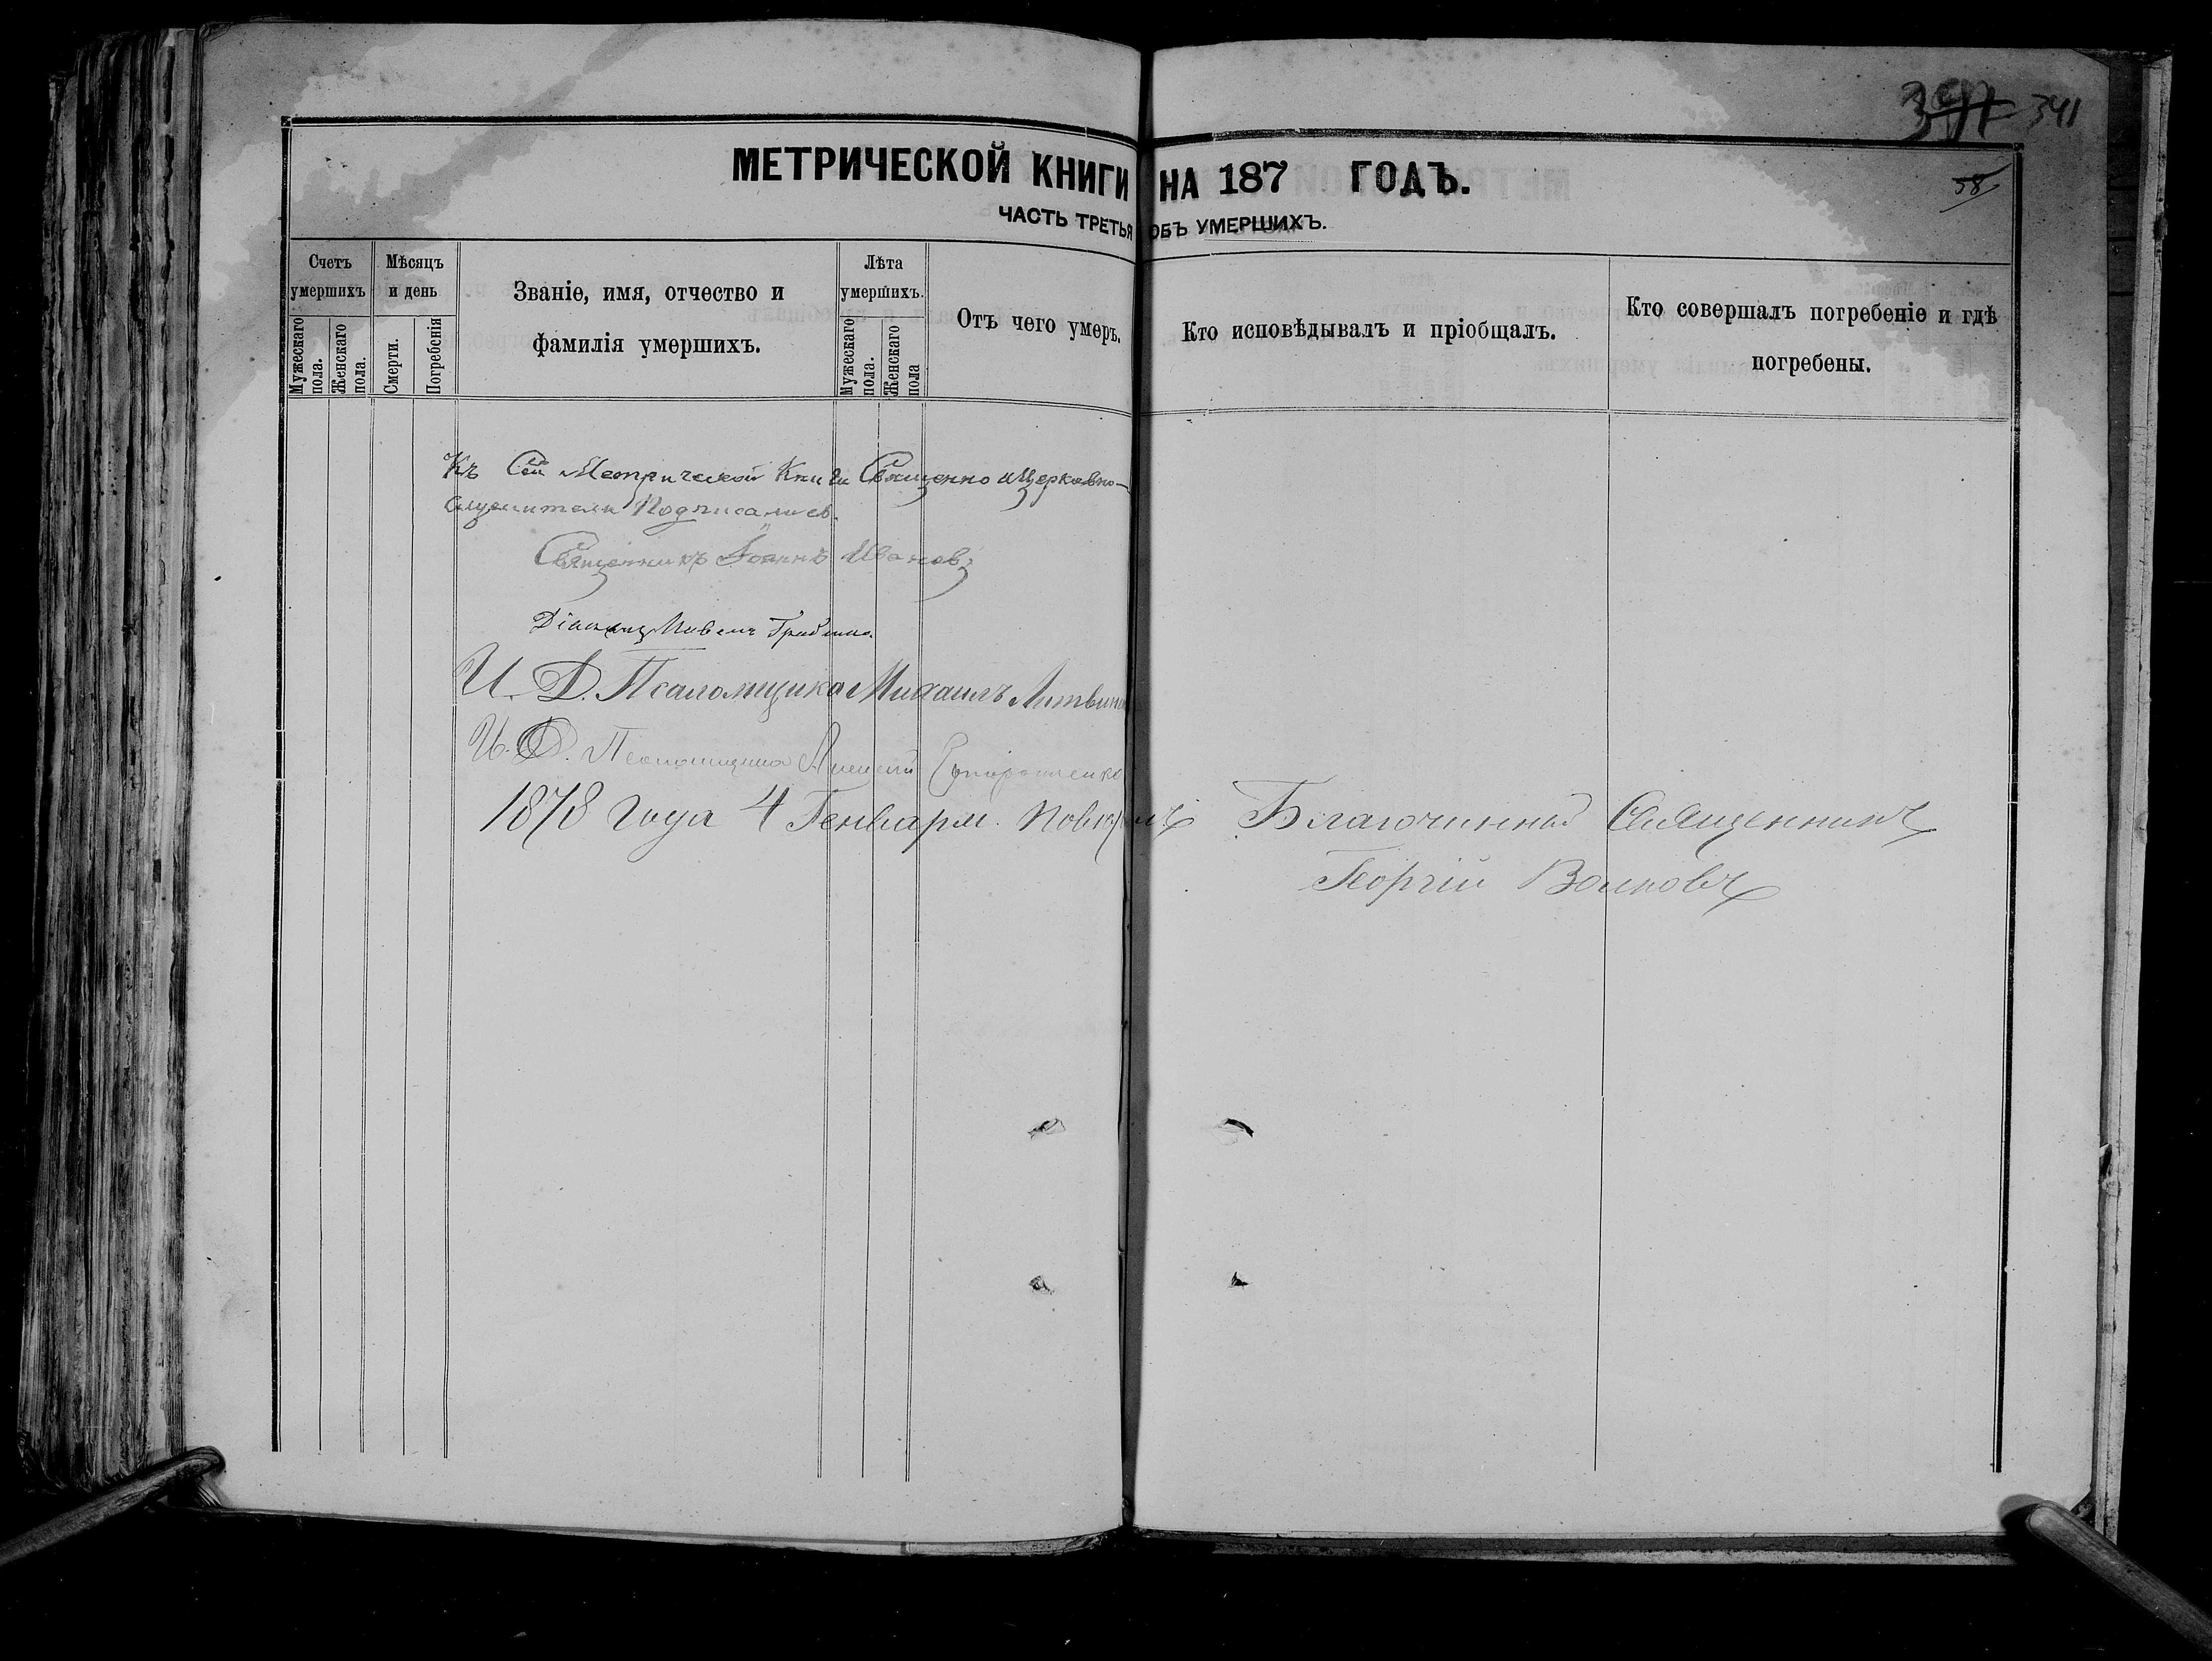 341
58
МЕТРИЧЕСКОЙ КНИГИ НА 187 ГОДЪ.
ЧАСТЬ ТРЕТЬЯ ОБЪ УМЕРШИХЪ.
Счетъ умершихъ
Мужескаго пола.
Женскаго пола.
Мѣсяцъ и день
Смерти.
Погребенія
Званіе, имя, отчество и
фамилія умершихъ.
Лѣта умершихъ.
Мужескаго пола.
Женскаго пола
Отъ чего умеръ.
Кто исповѣдывалъ и пріобщалъ.
Кто совершалъ погребеніе и гдѣ
погребены.
Къ Сей Метрической Книги Священно и Церковно-
служители Подписались.
Священникъ Іоаннъ Ивановъ
Діаконъ
И. Д. Псаломщика Михаилъ Литвин
И. Д. Псаломщика Алексѣй
1878 года 4 Генваря. Повѣрялъ Благочинный Священникъ
Георгій Волковъ